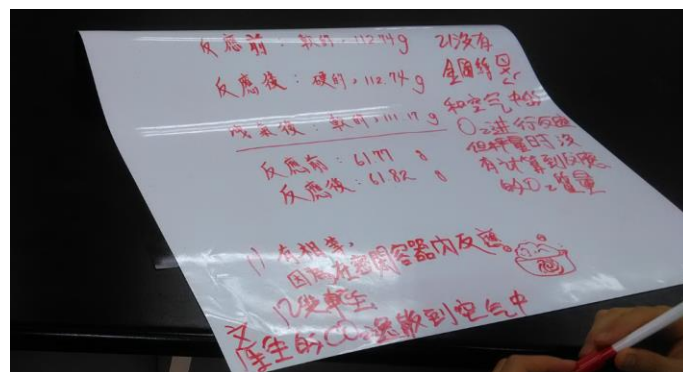 反應前：軟的，112.74g
反應後：硬的，112.74 g
洩氣後：軟的，111.17 g
反應前：61.77 g
反應後：61.82 g
2)沒有
金屬鎂是
和空气中的
O₂進行反應
但秤量時沒
有計算到反應
的O₂質量
1) 有相等，
因為在密閉容器內反應。
12變輕
產生的CO₂逸散到空气中